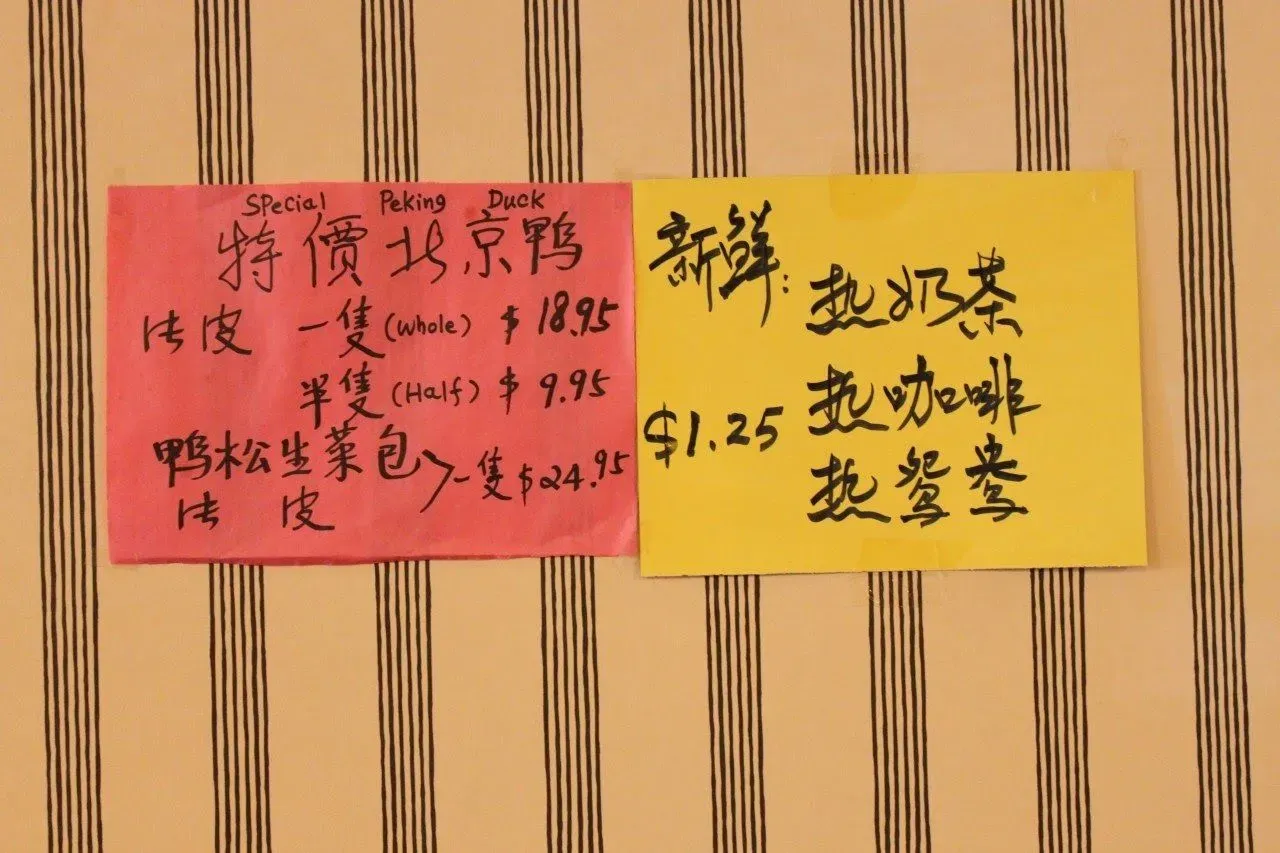 Special Peking Duck
特價北京鴨
皮 一隻 (Whole) $ 18.95
半隻 (Half) $ 9.95
鴨松生菜包
皮
一隻 $24.95
新鲜:
热奶茶
热咖啡
$1.25
热鸳鸯